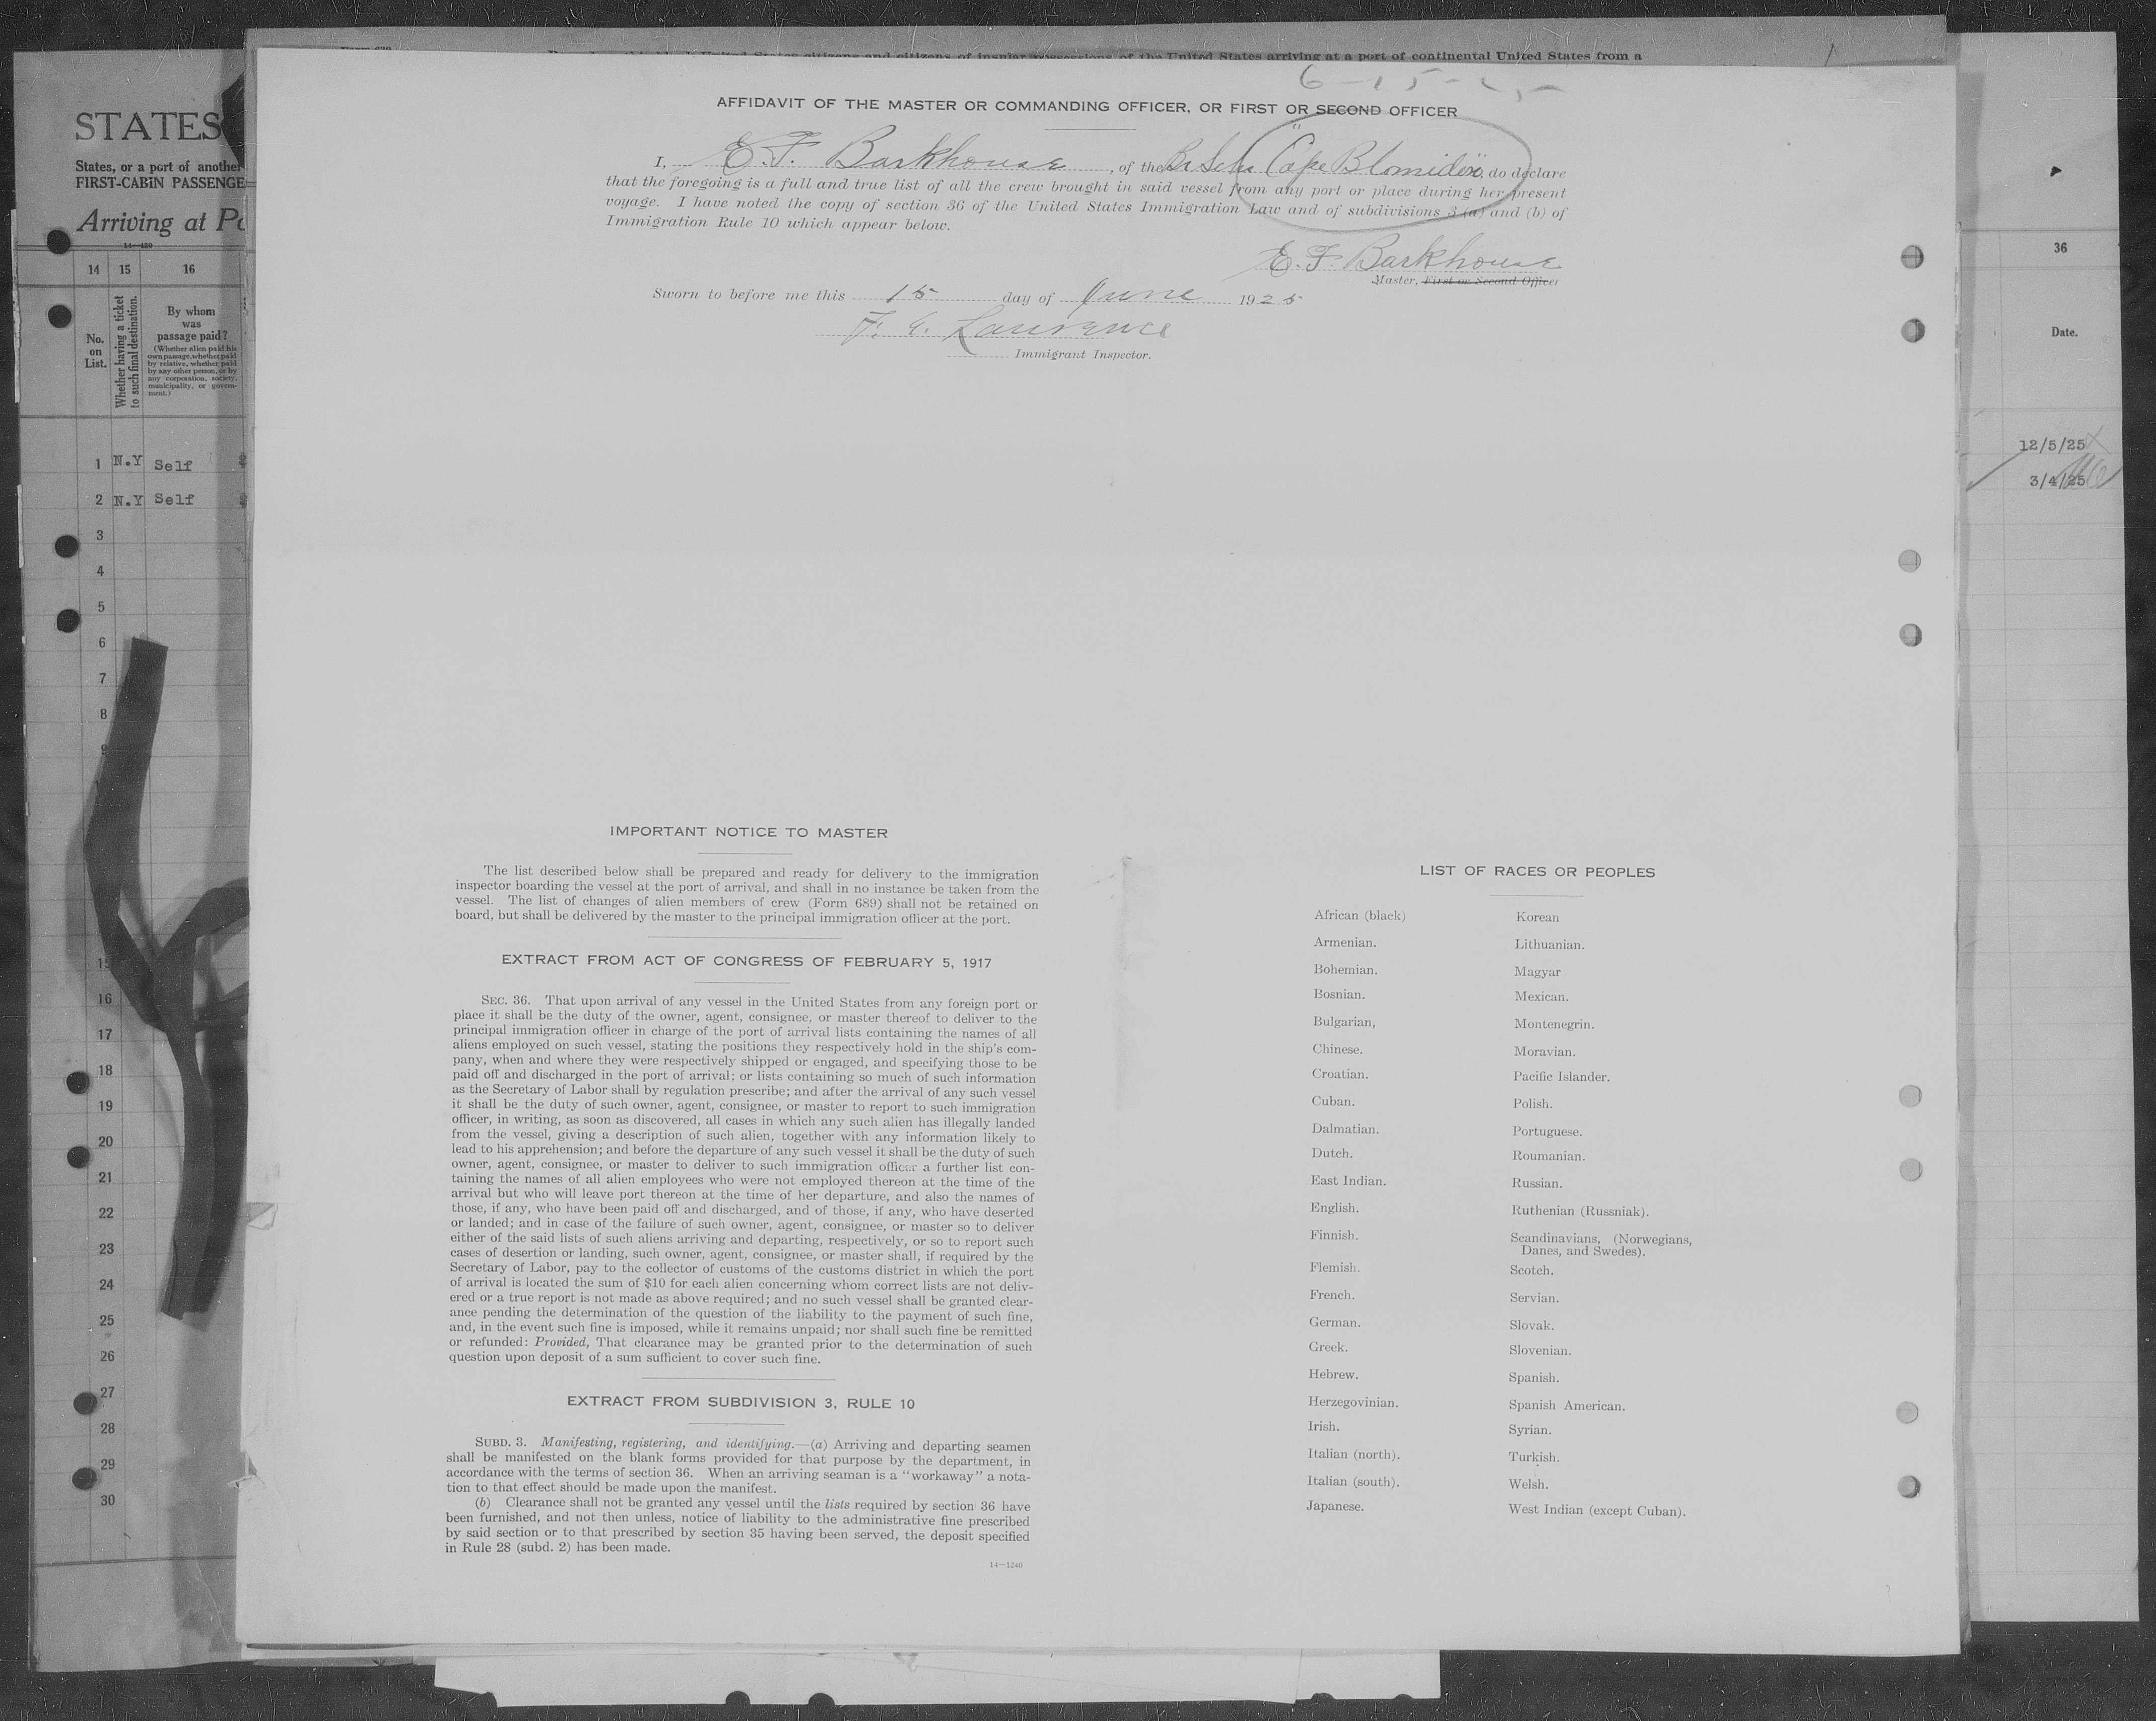 Form 689
Passengers United States citizens and citizens of insular possessions of the United States arriving at a port of continental United States from a
STATES
States, or a port of another
FIRST-CABIN PASSENGE
Arriving at Po
14—430
14 15 16
No. on List.
Whether having a ticket to such final destination.
By whom was passage paid?
(Whether alien paid his own passage, whether paid by relative, whether paid by any other person, or by any corporation, society, municipality, or government.)
1 N.Y Self
2 N.Y Self
3
4
5
6
7
8
9
15
16
17
18
19
20
21
22
23
24
25
26
27
28
29
30
6-15-25
AFFIDAVIT OF THE MASTER OR COMMANDING OFFICER, OR FIRST OR SECOND OFFICER
I, E. F. Barkhouse, of the Br Schr "Cape Blomidon", do declare
that the foregoing is a full and true list of all the crew brought in said vessel from any port or place during her present
voyage. I have noted the copy of section 36 of the United States Immigration Law and of subdivisions 3 (a) and (b) of
Immigration Rule 10 which appear below.
E. F. Barkhouse
Master, First or Second Officer
Sworn to before me this 15 day of June 1925
F. E. Lawrence
Immigrant Inspector.
IMPORTANT NOTICE TO MASTER
The list described below shall be prepared and ready for delivery to the immigration
inspector boarding the vessel at the port of arrival, and shall in no instance be taken from the
vessel. The list of changes of alien members of crew (Form 689) shall not be retained on
board, but shall be delivered by the master to the principal immigration officer at the port.
EXTRACT FROM ACT OF CONGRESS OF FEBRUARY 5, 1917
SEC. 36. That upon arrival of any vessel in the United States from any foreign port or
place it shall be the duty of the owner, agent, consignee, or master thereof to deliver to the
principal immigration officer in charge of the port of arrival lists containing the names of all
aliens employed on such vessel, stating the positions they respectively hold in the ship's com-
pany, when and where they were respectively shipped or engaged, and specifying those to be
paid off and discharged in the port of arrival; or lists containing so much of such information
as the Secretary of Labor shall by regulation prescribe; and after the arrival of any such vessel
it shall be the duty of such owner, agent, consignee, or master to report to such immigration
officer, in writing, as soon as discovered, all cases in which any such alien has illegally landed
from the vessel, giving a description of such alien, together with any information likely to
lead to his apprehension; and before the departure of any such vessel it shall be the duty of such
owner, agent, consignee, or master to deliver to such immigration officer a further list con-
taining the names of all alien employees who were not employed thereon at the time of the
arrival but who will leave port thereon at the time of her departure, and also the names of
those, if any, who have been paid off and discharged, and of those, if any, who have deserted
or landed; and in case of the failure of such owner, agent, consignee, or master so to deliver
either of the said lists of such aliens arriving and departing, respectively, or so to report such
cases of desertion or landing, such owner, agent, consignee, or master shall, if required by the
Secretary of Labor, pay to the collector of customs of the customs district in which the port
of arrival is located the sum of $10 for each alien concerning whom correct lists are not deliv-
ered or a true report is not made as above required; and no such vessel shall be granted clear-
ance pending the determination of the question of the liability to the payment of such fine,
and, in the event such fine is imposed, while it remains unpaid; nor shall such fine be remitted
or refunded: Provided, That clearance may be granted prior to the determination of such
question upon deposit of a sum sufficient to cover such fine.
EXTRACT FROM SUBDIVISION 3, RULE 10
SUBD. 3. Manifesting, registering, and identifying.—(a) Arriving and departing seamen
shall be manifested on the blank forms provided for that purpose by the department, in
accordance with the terms of section 36. When an arriving seaman is a "workaway" a nota-
tion to that effect should be made upon the manifest.
(b) Clearance shall not be granted any vessel until the lists required by section 36 have
been furnished, and not then unless, notice of liability to the administrative fine prescribed
by said section or to that prescribed by section 35 having been served, the deposit specified
in Rule 28 (subd. 2) has been made.
14—1240
LIST OF RACES OR PEOPLES
African (black) Korean
Armenian. Lithuanian.
Bohemian. Magyar
Bosnian. Mexican.
Bulgarian, Montenegrin.
Chinese. Moravian.
Croatian. Pacific Islander.
Cuban. Polish.
Dalmatian. Portuguese.
Dutch. Roumanian.
East Indian. Russian.
English. Ruthenian (Russniak).
Finnish. Scandinavians, (Norwegians,
Danes, and Swedes).
Flemish. Scotch.
French. Servian.
German. Slovak.
Greek. Slovenian.
Hebrew. Spanish.
Herzegovinian. Spanish American.
Irish. Syrian.
Italian (north). Turkish.
Italian (south). Welsh.
Japanese. West Indian (except Cuban).
36
Date.
12/5/25
3/4/25